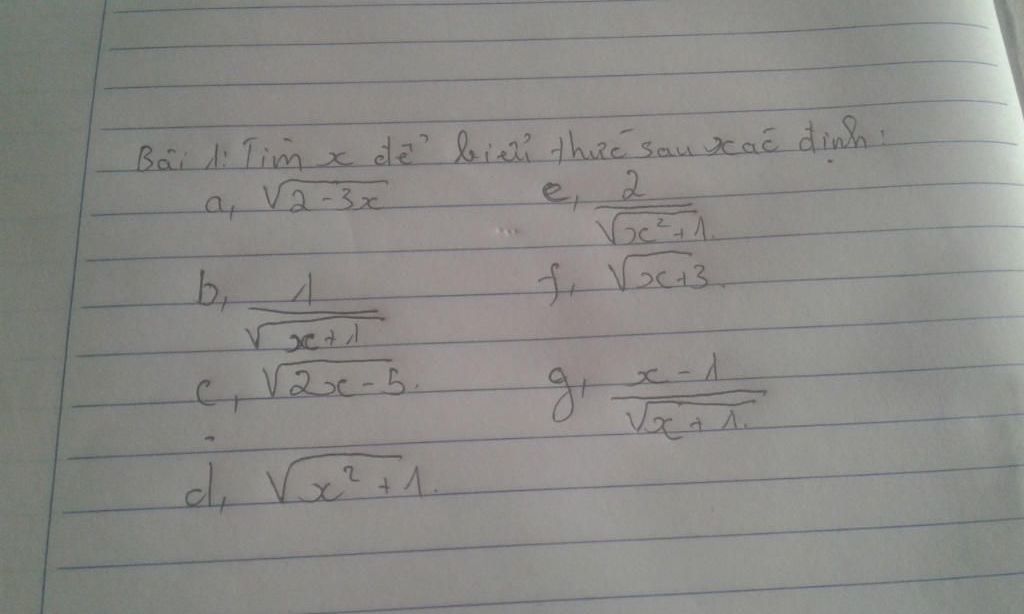 Bài 1: Tìm x để biểu thức sau xác định:
a, √(2-3x)
e, 2/√(x²+1)
b, 1/√(x+1)
f, √(x+3)
c, √(2x-5)
g, (x-1)/√(x+1)
d, √(x²+1)